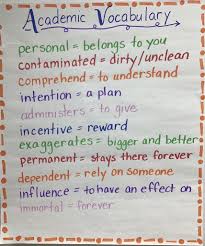 Academic Vocabulary
personal = belongs to you
contaminated = dirty/unclean
comprehend = to understand
intention = a plan
administers = to give
incentive = reward
exaggerates = bigger and better
permanent = stays there forever
dependent = rely on someone
influence = to have an effect on
immortal = forever